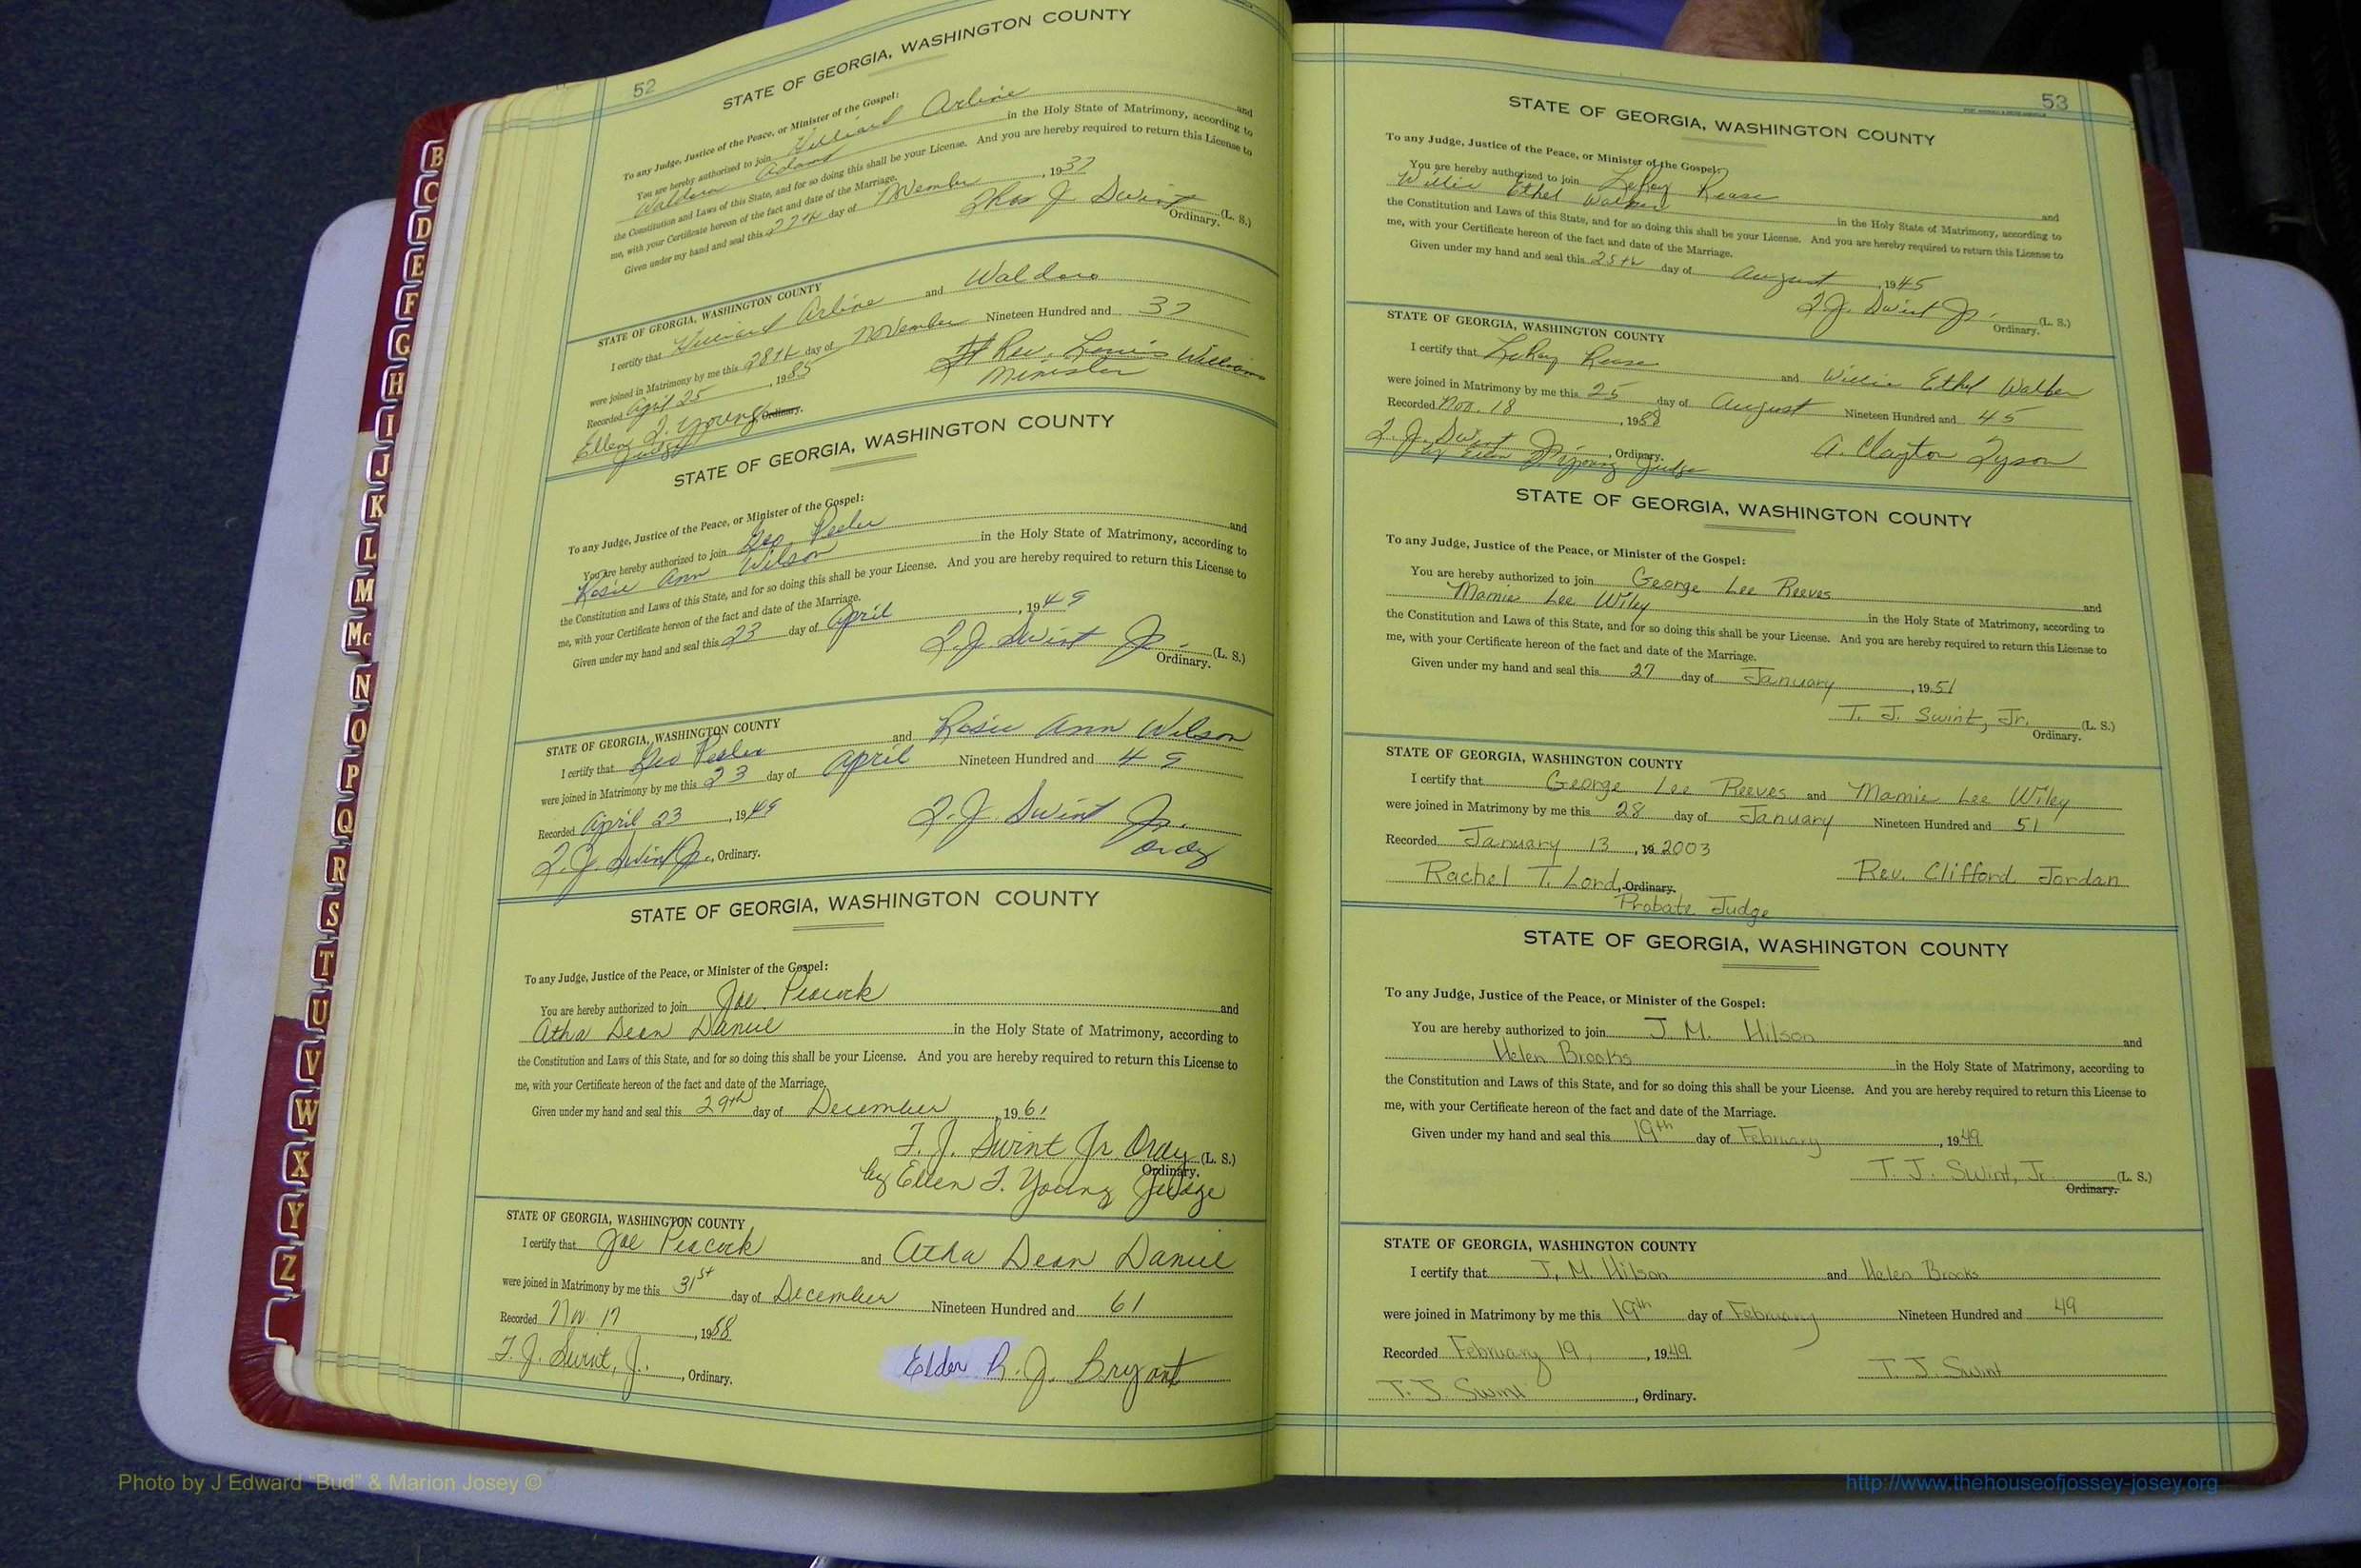 52
STATE OF GEORGIA, WASHINGTON COUNTY
To any Judge, Justice of the Peace, or Minister of the Gospel:
You are hereby authorized to join Hilliard Arline and
Waldora Adams in the Holy State of Matrimony, according to
the Constitution and Laws of this State, and for so doing this shall be your License. And you are hereby required to return this License to
me, with your Certificate hereon of the fact and date of the Marriage.
Given under my hand and seal this 27th day of November, 1937
Thos J Swint (L. S.)
Ordinary.
STATE OF GEORGIA, WASHINGTON COUNTY
I certify that Hilliard Arline and Waldora
were joined in Matrimony by me this 28th day of November Nineteen Hundred and 37
Recorded April 25, 1985 Rev. Louis Williams
Ellen T. Young Ordinary. Minister
Judge
STATE OF GEORGIA, WASHINGTON COUNTY
To any Judge, Justice of the Peace, or Minister of the Gospel:
You are hereby authorized to join Geo Peeler and
Rosie Ann Wilson in the Holy State of Matrimony, according to
the Constitution and Laws of this State, and for so doing this shall be your License. And you are hereby required to return this License to
me, with your Certificate hereon of the fact and date of the Marriage.
Given under my hand and seal this 23 day of April, 1949
T. J. Swint Jr. (L. S.)
Ordinary.
STATE OF GEORGIA, WASHINGTON COUNTY
I certify that Geo Peeler and Rosie Ann Wilson
were joined in Matrimony by me this 23 day of April Nineteen Hundred and 49
Recorded April 23, 1949 T. J. Swint Jr.
T. J. Swint Jr., Ordinary. Ordy
STATE OF GEORGIA, WASHINGTON COUNTY
To any Judge, Justice of the Peace, or Minister of the Gospel:
You are hereby authorized to join Joe Peacock and
Atha Dean Daniel in the Holy State of Matrimony, according to
the Constitution and Laws of this State, and for so doing this shall be your License. And you are hereby required to return this License to
me, with your Certificate hereon of the fact and date of the Marriage.
Given under my hand and seal this 29th day of December, 1961
T. J. Swint Jr. Ordy (L. S.)
Ordinary.
by Ellen T. Young Judge
STATE OF GEORGIA, WASHINGTON COUNTY
I certify that Joe Peacock and Atha Dean Daniel
were joined in Matrimony by me this 31st day of December Nineteen Hundred and 61
Recorded Nov 17, 1988
T. J. Swint, Jr., Ordinary. Elder R. J. Bryant
53
STATE OF GEORGIA, WASHINGTON COUNTY
To any Judge, Justice of the Peace, or Minister of the Gospel:
You are hereby authorized to join LeRoy Rease and
Willie Ethel Walker in the Holy State of Matrimony, according to
the Constitution and Laws of this State, and for so doing this shall be your License. And you are hereby required to return this License to
me, with your Certificate hereon of the fact and date of the Marriage.
Given under my hand and seal this 25th day of August, 1945
T. J. Swint Jr. (L. S.)
Ordinary.
STATE OF GEORGIA, WASHINGTON COUNTY
I certify that LeRoy Rease and Willie Ethel Walker
were joined in Matrimony by me this 25 day of August Nineteen Hundred and 45
Recorded Nov. 18, 1988
T. J. Swint Jr., Ordinary. A. Clayton Tyson
by Ellen T. Young Judge
STATE OF GEORGIA, WASHINGTON COUNTY
To any Judge, Justice of the Peace, or Minister of the Gospel:
You are hereby authorized to join George Lee Reeves and
Mamie Lee Wiley in the Holy State of Matrimony, according to
the Constitution and Laws of this State, and for so doing this shall be your License. And you are hereby required to return this License to
me, with your Certificate hereon of the fact and date of the Marriage.
Given under my hand and seal this 27 day of January, 1951
T. J. Swint, Jr. (L. S.)
Ordinary.
STATE OF GEORGIA, WASHINGTON COUNTY
I certify that George Lee Reeves and Mamie Lee Wiley
were joined in Matrimony by me this 28 day of January Nineteen Hundred and 51
Recorded January 13, 19 2003
Rachel T. Lord, Ordinary. Rev. Clifford Jordan
Probate Judge
STATE OF GEORGIA, WASHINGTON COUNTY
To any Judge, Justice of the Peace, or Minister of the Gospel:
You are hereby authorized to join J. M. Hilson and
Helen Brooks in the Holy State of Matrimony, according to
the Constitution and Laws of this State, and for so doing this shall be your License. And you are hereby required to return this License to
me, with your Certificate hereon of the fact and date of the Marriage.
Given under my hand and seal this 19th day of February, 1949
T. J. Swint, Jr. (L. S.)
Ordinary.
STATE OF GEORGIA, WASHINGTON COUNTY
I certify that J. M. Hilson and Helen Brooks
were joined in Matrimony by me this 19th day of February Nineteen Hundred and 49
Recorded February 19, 1949 T. J. Swint
T. J. Swint, Ordinary.
B
C
D
E
F
G
H
I
J
K
L
M
Mc
N
O
P
Q
R
S
T
U
V
W
X
Y
Z
Photo by J Edward "Bud" & Marion Josey ©
http://www.thehouseofjossey-josey.org